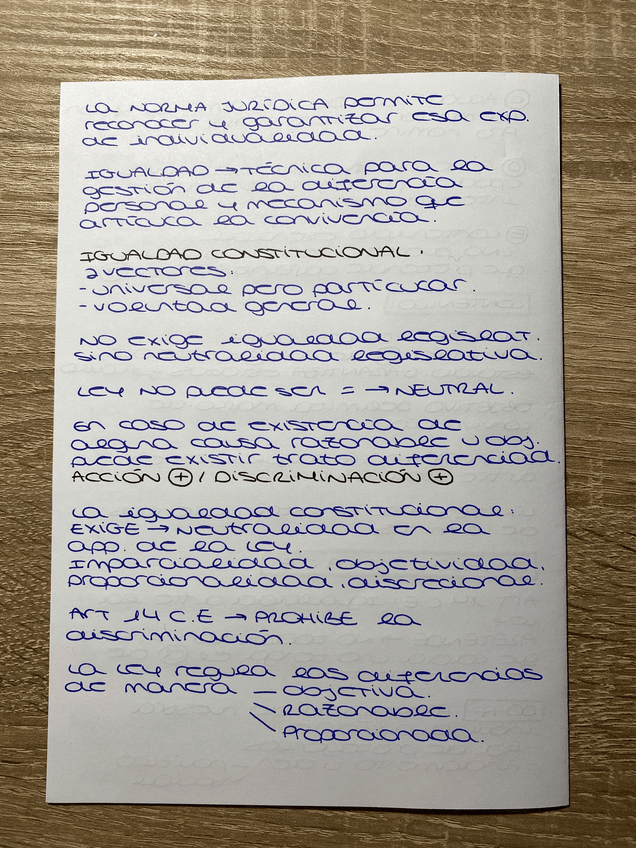 La NORMA JURÍDICA permite
reconocer y garantizar esa exp.
de individualidad.
IGUALDAD → TÉCNICA para la
gestión de la diferencia
personal y mecanismo que
articula la convivencia.
IGUALDAD CONSTITUCIONAL.
2 VECTORES:
- universal pero particular.
- voluntad general.
NO EXIGE igualdad legislat.
sino neutralidad legislativa.
LEY NO puede SER = → NEUTRAL.
En caso de existencia de
alguna causa razonable u obj.
puede existir trato diferenciad.
ACCIÓN ⊕ / DISCRIMINACIÓN ⊕
La igualdad constitucional:
EXIGE → Neutralidad en la
app. de la Ley.
Imparcialidad, objetividad,
proporcionalidad, discrecional.
ART 14 C.E → PROHIBE la
discriminación.
La LEY regula las diferencias
de manera — objetiva.
\ Razonable.
\ Proporcionada.